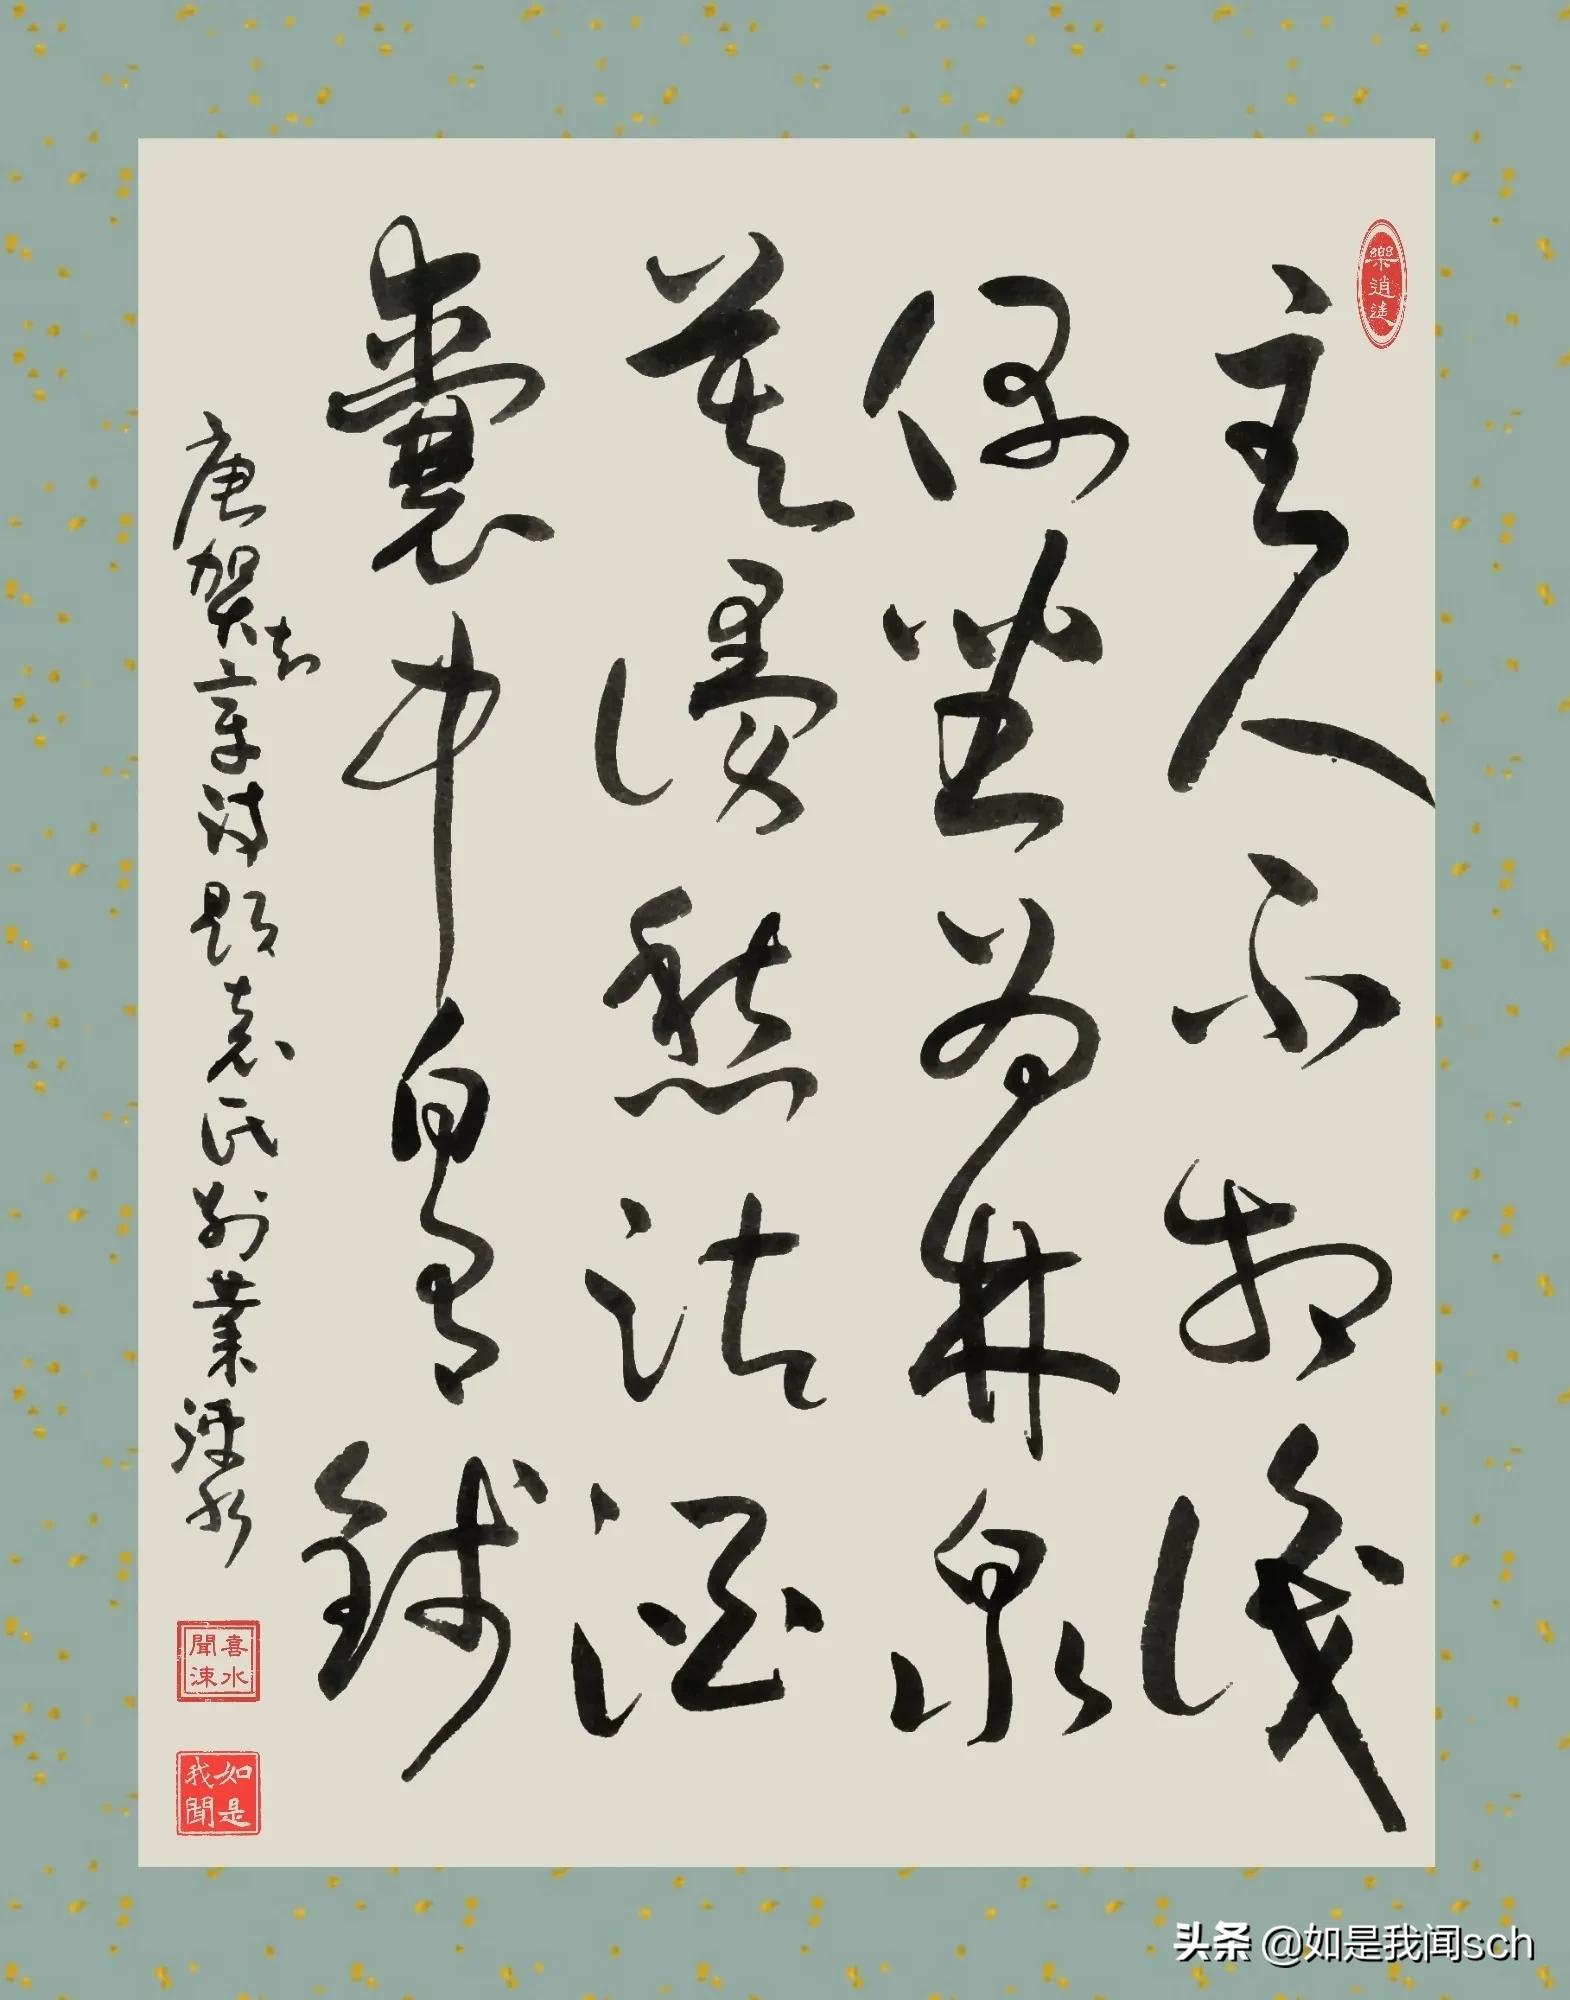 樂逍遥
主人不相識
偶坐為林泉
莫謾愁沽酒
囊中自有錢
唐賀知章詩題袁氏別業 涑水
喜水聞涑
如是我聞
头条 @如是我闻sch